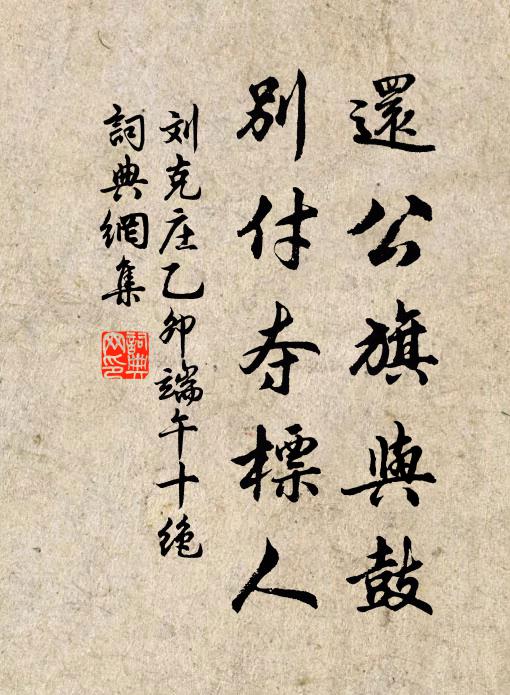 還公旗與鼓
別付夺標人
刘克庄乙卯端午十绝
詞典網集
詞典网印